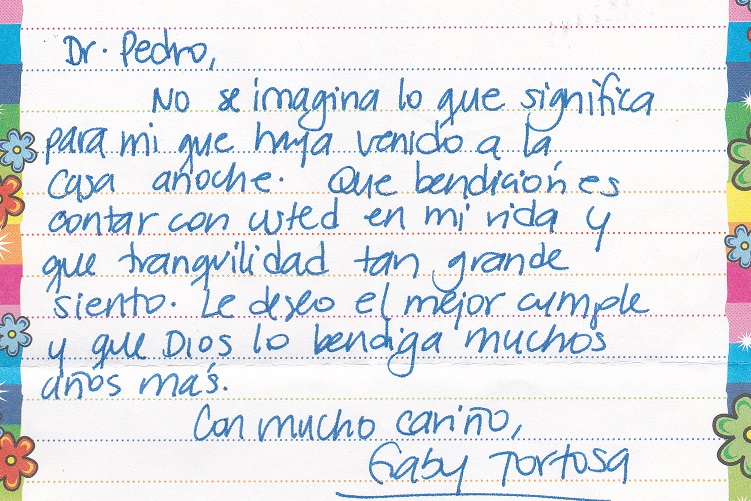 Dr. Pedro,
No se imagina lo que significa
para mi que haya venido a la
casa anoche. Que bendición es
contar con usted en mi vida y
que tranquilidad tan grande
siento. Le deseo el mejor cumple
y que Dios lo bendiga muchos
años más.
Con mucho cariño,
Gaby Tortosa